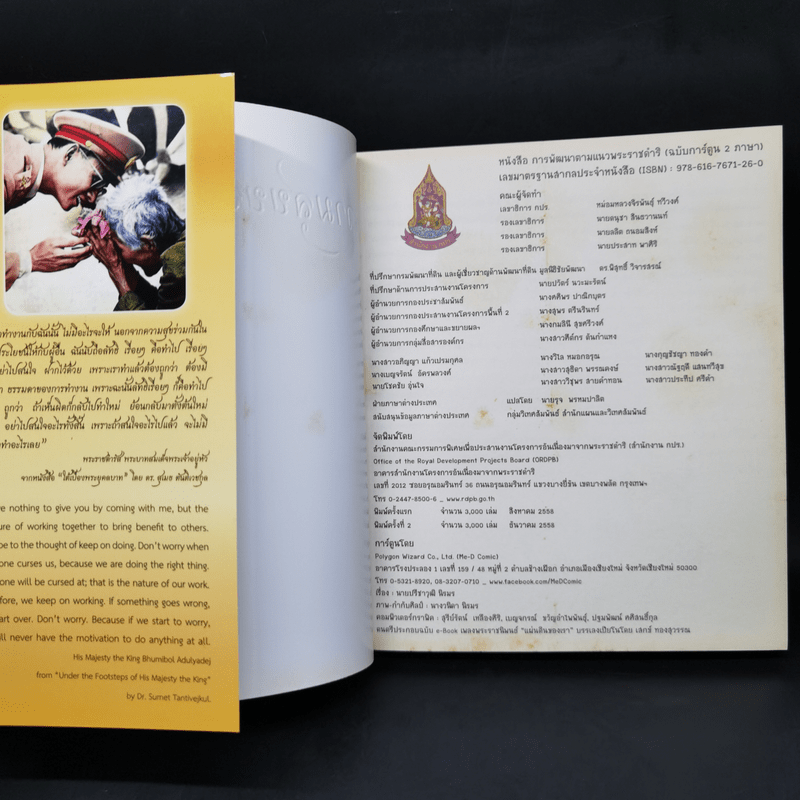 ทำงานกับฉันนั้น ไม่มีอะไรจะให้ นอกจากความสุขร่วมกันใน
ประโยชน์ให้กับผู้อื่น ฉันนับถือลัทธิ เรื่อยๆ คือทำไป เรื่อยๆ
อย่าไปสนใจ ฝากไว้ด้วย เพราะเราทำแล้วต้องถูกว่า ต้องมี
ธรรมดาของการทำงาน เพราะฉะนั้นลัทธิเรื่อยๆ ก็คือทำไป
ถูกว่า ถ้าเห็นผิดก็กลับไปทำใหม่ ย้อนกลับมาตั้งต้นใหม่
อย่าไปสนใจอะไรทั้งสิ้น เพราะถ้าสนใจอะไรไปแล้ว จะไม่มี
ทำอะไรเลย”
พระราชดำรัส พระบาทสมเด็จพระเจ้าอยู่หัว
จากหนังสือ “ใต้เบื้องพระยุคลบาท” โดย ดร.สุเมธ ตันติเวชกุล
nothing to give you by coming with me, but the
of working together to bring benefit to others.
to the thought of keep on doing. Don't worry when
curses us, because we are doing the right thing.
will be cursed at; that is the nature of our work.
we keep on working. If something goes wrong,
over. Don't worry. Because if we start to worry,
never have the motivation to do anything at all.
His Majesty the King Bhumibol Adulyadej
from "Under the Footsteps of His Majesty the King"
by Dr. Sumet Tantivejkul.
หนังสือ การพัฒนาตามแนวพระราชดำริ (ฉบับการ์ตูน 2 ภาษา)
เลขมาตรฐานสากลประจำหนังสือ (ISBN) : 978-616-7671-26-0
คณะผู้จัดทำ
เลขาธิการ กปร. หม่อมหลวงจิรพันธุ์ ทวีวงศ์
รองเลขาธิการ นายดนุชา สินธวานนท์
รองเลขาธิการ นายลลิต ถนอมสิงห์
รองเลขาธิการ นายประสาท พาศิริ
ที่ปรึกษากรมพัฒนาที่ดิน และผู้เชี่ยวชาญด้านพัฒนาที่ดิน มูลนิธิชัยพัฒนา ดร.พิสุทธิ์ วิจารสรณ์
ที่ปรึกษาด้านการประสานงานโครงการ นายปวัตร์ นวะมะรัตน์
ผู้อำนวยการกองประชาสัมพันธ์ นางศศิพร ปาณิกบุตร
ผู้อำนวยการกองประสานงานโครงการพื้นที่ 2 นายสุพร ตรีนรินทร์
ผู้อำนวยการกองศึกษาและขยายผลฯ นางกมลินี สุขศรีวงศ์
ผู้อำนวยการกลุ่มสื่อสารองค์กร นางสาวศีต์กร ต้นกำแหง
นางสาวอภิญญา แก้วเปรมกุศล นางวิไล หมอกอรุณ นางกุญชัชญา ทองคำ
นางเบญจรัตน์ อัตรนลวงศ์ นางสาวสุธิดา พรรณดงษ์ นางสาวณัฐฤดี แสนทวีสุข
นายโชคชัย อุ่นใจ นางสาววิชุพร สายคำทอน นางสาวประทีป ศรีคำ
ฝ่ายภาษาต่างประเทศ แปลโดย นายรุจ พรหมปาลิต
สนับสนุนข้อมูลภาษาต่างประเทศ กลุ่มวิเทศสัมพันธ์ สำนักแผนและวิเทศสัมพันธ์
จัดพิมพ์โดย
สำนักงานคณะกรรมการพิเศษเพื่อประสานงานโครงการอันเนื่องมาจากพระราชดำริ (สำนักงาน กปร.)
Office of the Royal Development Projects Board (ORDPB)
อาคารสำนักงานโครงการอันเนื่องมาจากพระราชดำริ
เลขที่ 2012 ซอยอรุณอมรินทร์ 36 ถนนอรุณอมรินทร์ แขวงบางยี่ขัน เขตบางพลัด กรุงเทพฯ
โทร 0-2447-8500-6 _ www.rdpb.go.th
พิมพ์ครั้งแรก จำนวน 3,000 เล่ม สิงหาคม 2558
พิมพ์ครั้งที่ 2 จำนวน 3,000 เล่ม ธันวาคม 2558
การ์ตูนโดย
Polygon Wizard Co., Ltd. (Me-D Comic)
อาคารโรงประลอง 1 เลขที่ 159 / 48 หมู่ที่ 2 ตำบลช้างเผือก อำเภอเมืองเชียงใหม่ จังหวัดเชียงใหม่ 50300
โทร 0-5321-8920, 08-3207-0710 _ www.facebook.com/MeDComic
เรื่อง : นายปรีชาวุฒิ นิรมร
ภาพ-กำกับศิลป์ : นางวนิดา นิรมร
คอมพิวเตอร์กราฟิค : สุรีย์รัตน์ เหลืองศิริ, เบญจภรณ์ ขวัญอำไพพันธุ์, ปฐมพัฒน์ คศิลนธิ์กุล
ดนตรีประกอบฉบับ e-Book เพลงพระราชนิพนธ์ “แผ่นดินของเรา” บรรเลงเปียโนโดย เสกข์ ทองสุวรรณ